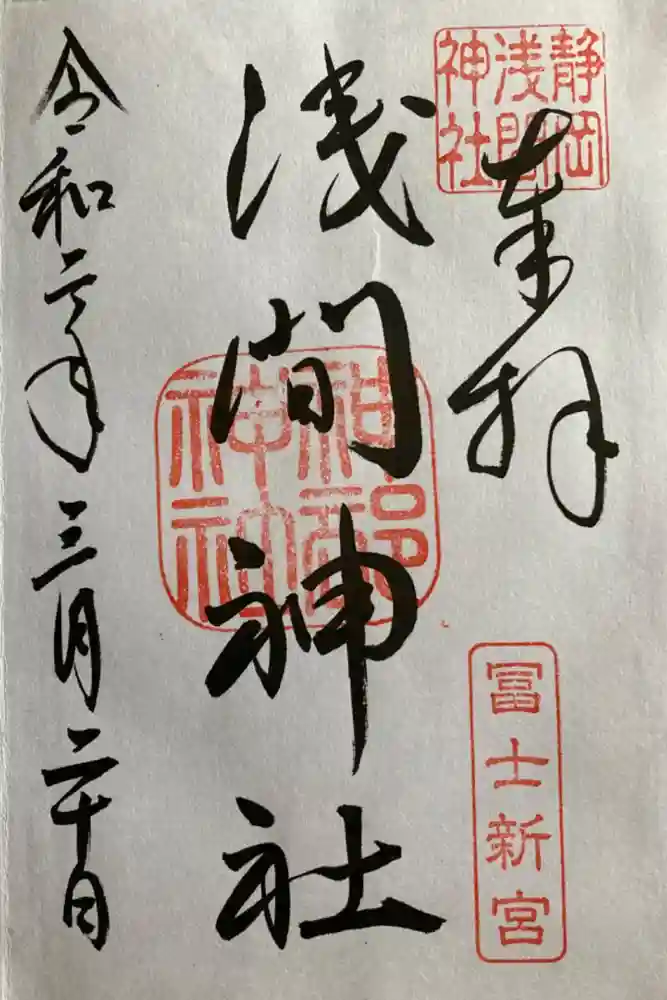 静岡
浅間
神社
奉拝
冨士新宮
浅間神社
令和二年三月二十日